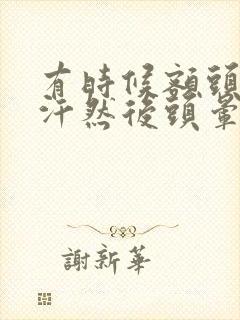 有時候額頭
汗然後頭暈
謝新華